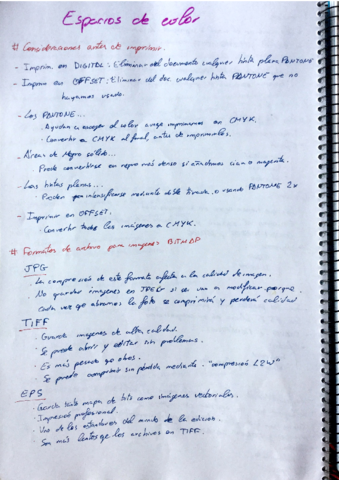 Espacios de color
# Consideraciones antes de imprimir.
- Imprimir en DIGITAL: Eliminar del documento cualquier tinta plana PANTONE
- Imprimir en OFFSET: Eliminar del doc cualquier tinta PANTONE que no
hayamos usado.
- Los PANTONE...
· Ayudan a escoger el color aunque imprimamos en CMYK.
· Convertirlo a CMYK al final, antes de imprimirlos.
- Áreas de Negro sólido...
· Puede convertirse en negro más denso si añadimos cian o magenta.
- Las tintas planas...
· Pueden intensificarse mediante doble tirada, o usando PANTONE 2x
- Imprimir en OFFSET.
· Convertir todas las imágenes a CMYK.
# Formatos de archivo para imágenes BITMAP
JPG
· La compresión de este formato afecta a la calidad de imagen.
· No guardar imágenes en JPEG si se van a modificar porque
cada vez que abramos la foto se comprimirá y perderá calidad
TIFF
· Guarda imágenes de alta calidad.
· Se puede abrir y editar sin problemas.
· Es más pesado que otros.
· Se puede comprimir sin pérdida mediante "compresión LZW"
EPS
· Guarda tanto mapa de bits como imágenes vectoriales.
· Impresión profesional.
· Uno de los estándares del mundo de la edición.
· Son más lentos que los archivos en TIFF.